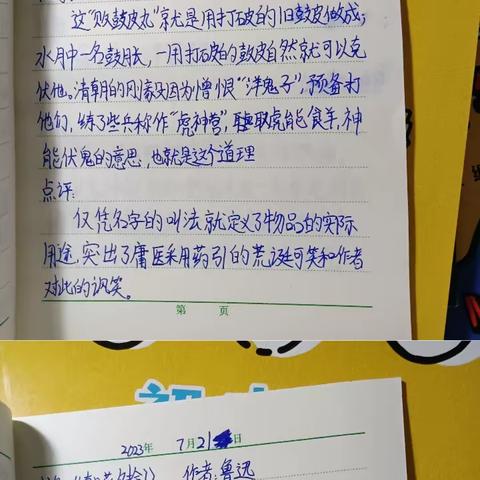 这"败鼓皮丸"就是用打破的旧鼓皮做成;
水肿一名鼓胀,一用打破的鼓皮自然就可以克
伏他。清朝的刚毅因为憎恨"洋鬼子",预备打
他们,练了些兵称作"虎神营",取虎能食羊,神
能伏鬼的意思,也就是这个道理
点评:
仅凭名字的叫法就定义了物品的实际
用途,突出了庸医采用药引的荒诞可笑和作者
对此的讽笑。
第 页
2023年 7月21日
作者:鲁迅